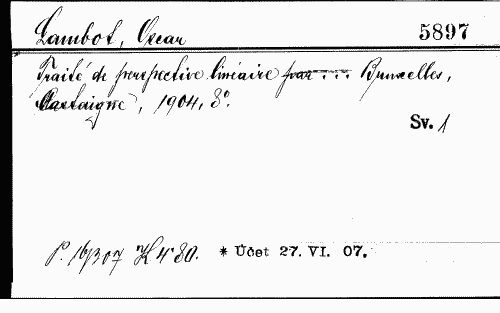 Lambot, Oscar 5897
Traité de perspective linéaire par ... Bruxelles,
Castaigne, 1904, 8°.
Sv. 1
P. 16/307 K 4·80. * Účet 27. VI. 07.